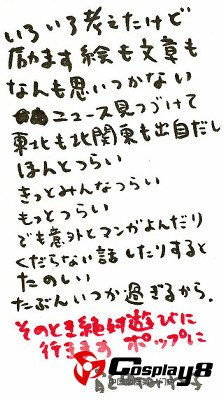 いろいろ考えたけど
励ます絵も文章も
なんも思いつかない
ニュース見つづけて
東北も北関東も出自だし
ほんとつらい
きっとみんなつらい
もっとつらい
でも意外とマンガよんだり
くだらない話したりすると
たのしい
たぶんいつか過ぎるから、
そのとき絶対遊びに
行きます ポップに
Cosplay8